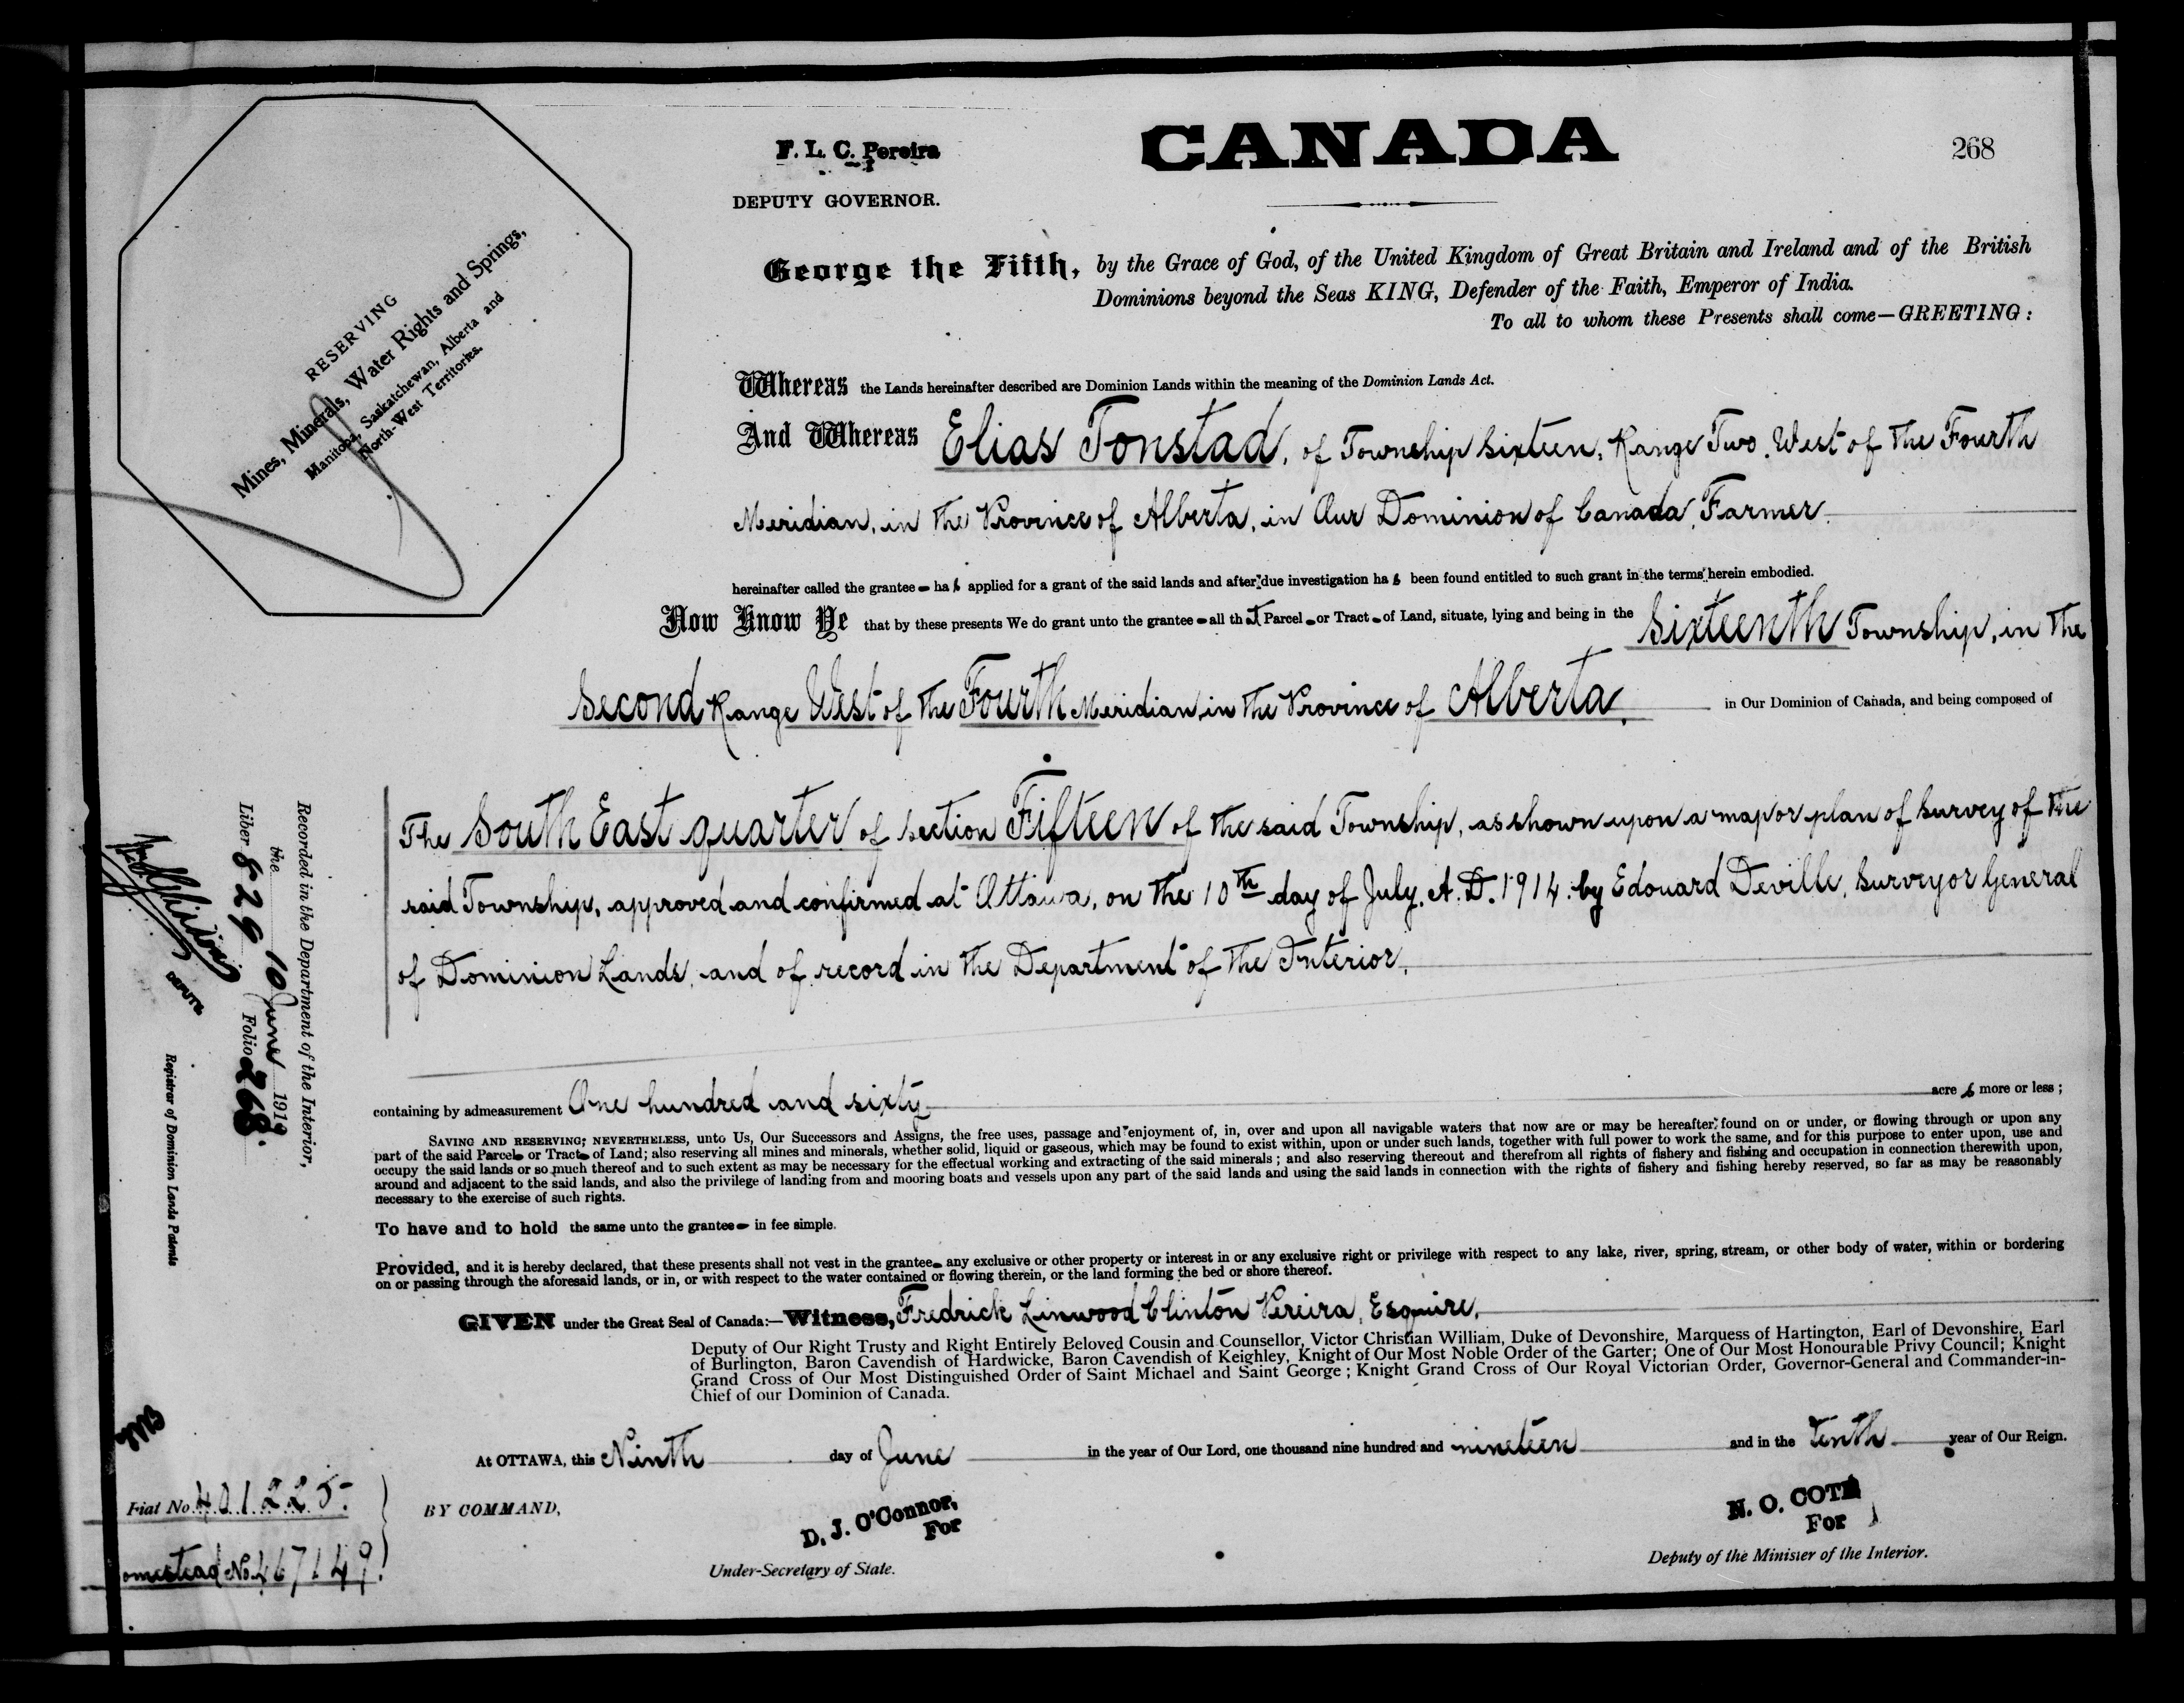 F. L. C. Pereira
DEPUTY GOVERNOR.
CANADA
268
RESERVING
Mines, Minerals, Water Rights and Springs,
Manitoba, Saskatchewan, Alberta and
North-West Territories.
George the Fifth, by the Grace of God, of the United Kingdom of Great Britain and Ireland and of the British
Dominions beyond the Seas KING, Defender of the Faith, Emperor of India.
To all to whom these Presents shall come—GREETING:
Whereas the Lands hereinafter described are Dominion Lands within the meaning of the Dominion Lands Act.
And Whereas Elias Tonstad, of Township Sixteen, Range Two, West of the Fourth
Meridian, in the Province of Alberta, in Our Dominion of Canada, Farmer.
hereinafter called the grantee has applied for a grant of the said lands and after due investigation has been found entitled to such grant in the terms herein embodied.
Now Know Ye that by these presents We do grant unto the grantee all that Parcel or Tract of Land, situate, lying and being in the Sixteenth Township, in the
Second Range West of the Fourth Meridian, in the Province of Alberta, in Our Dominion of Canada, and being composed of
The South East quarter of section Fifteen of the said Township, as shown upon a map or plan of survey of the
said Township, approved and confirmed at Ottawa, on the 10th day of July, A.D. 1914 by Edouard Deville, Surveyor General
of Dominion Lands, and of record in the Department of the Interior,
containing by admeasurement One hundred and sixty acres more or less;
SAVING AND RESERVING; NEVERTHELESS, unto Us, Our Successors and Assigns, the free uses, passage and enjoyment of, in, over and upon all navigable waters that now are or may be hereafter found on or under, or flowing through or upon any
part of the said Parcel or Tract of Land; also reserving all mines and minerals, whether solid, liquid or gaseous, which may be found to exist within, upon or under such lands, together with full power to work the same, and for this purpose to enter upon, use and
occupy the said lands or so much thereof and to such extent as may be necessary for the effectual working and extracting of the said minerals; and also reserving thereout and therefrom all rights of fishery and fishing and occupation in connection therewith upon,
around and adjacent to the said lands, and also the privilege of landing from and mooring boats and vessels upon any part of the said lands and using the said lands in connection with the rights of fishery and fishing hereby reserved, so far as may be reasonably
necessary to the exercise of such rights.
To have and to hold the same unto the grantee in fee simple.
Provided, and it is hereby declared, that these presents shall not vest in the grantee any exclusive or other property or interest in or any exclusive right or privilege with respect to any lake, river, spring, stream, or other body of water, within or bordering
on or passing through the aforesaid lands, or in, or with respect to the water contained or flowing therein, or the land forming the bed or shore thereof.
GIVEN under the Great Seal of Canada:—Witness, Fredrick Linwood Clinton Pereira, Esquire,
Deputy of Our Right Trusty and Right Entirely Beloved Cousin and Counsellor, Victor Christian William, Duke of Devonshire, Marquess of Hartington, Earl of Devonshire, Earl
of Burlington, Baron Cavendish of Hardwicke, Baron Cavendish of Keighley, Knight of Our Most Noble Order of the Garter; One of Our Most Honourable Privy Council; Knight
Grand Cross of Our Most Distinguished Order of Saint Michael and Saint George; Knight Grand Cross of Our Royal Victorian Order, Governor-General and Commander-in-
Chief of our Dominion of Canada.
At OTTAWA, this Ninth day of June in the year of Our Lord, one thousand nine hundred and nineteen and in the tenth year of Our Reign.
BY COMMAND,
D. J. O'Connor,
For
Under-Secretary of State.
N. O. COTE
For
Deputy of the Minister of the Interior.
Recorded in the Department of the Interior,
the 10 June 1919
Liber 829 Folio 268.
DEPUTY
Registrar of Dominion Lands Patents
Fiat No. 401225.
omestead No. 467149.